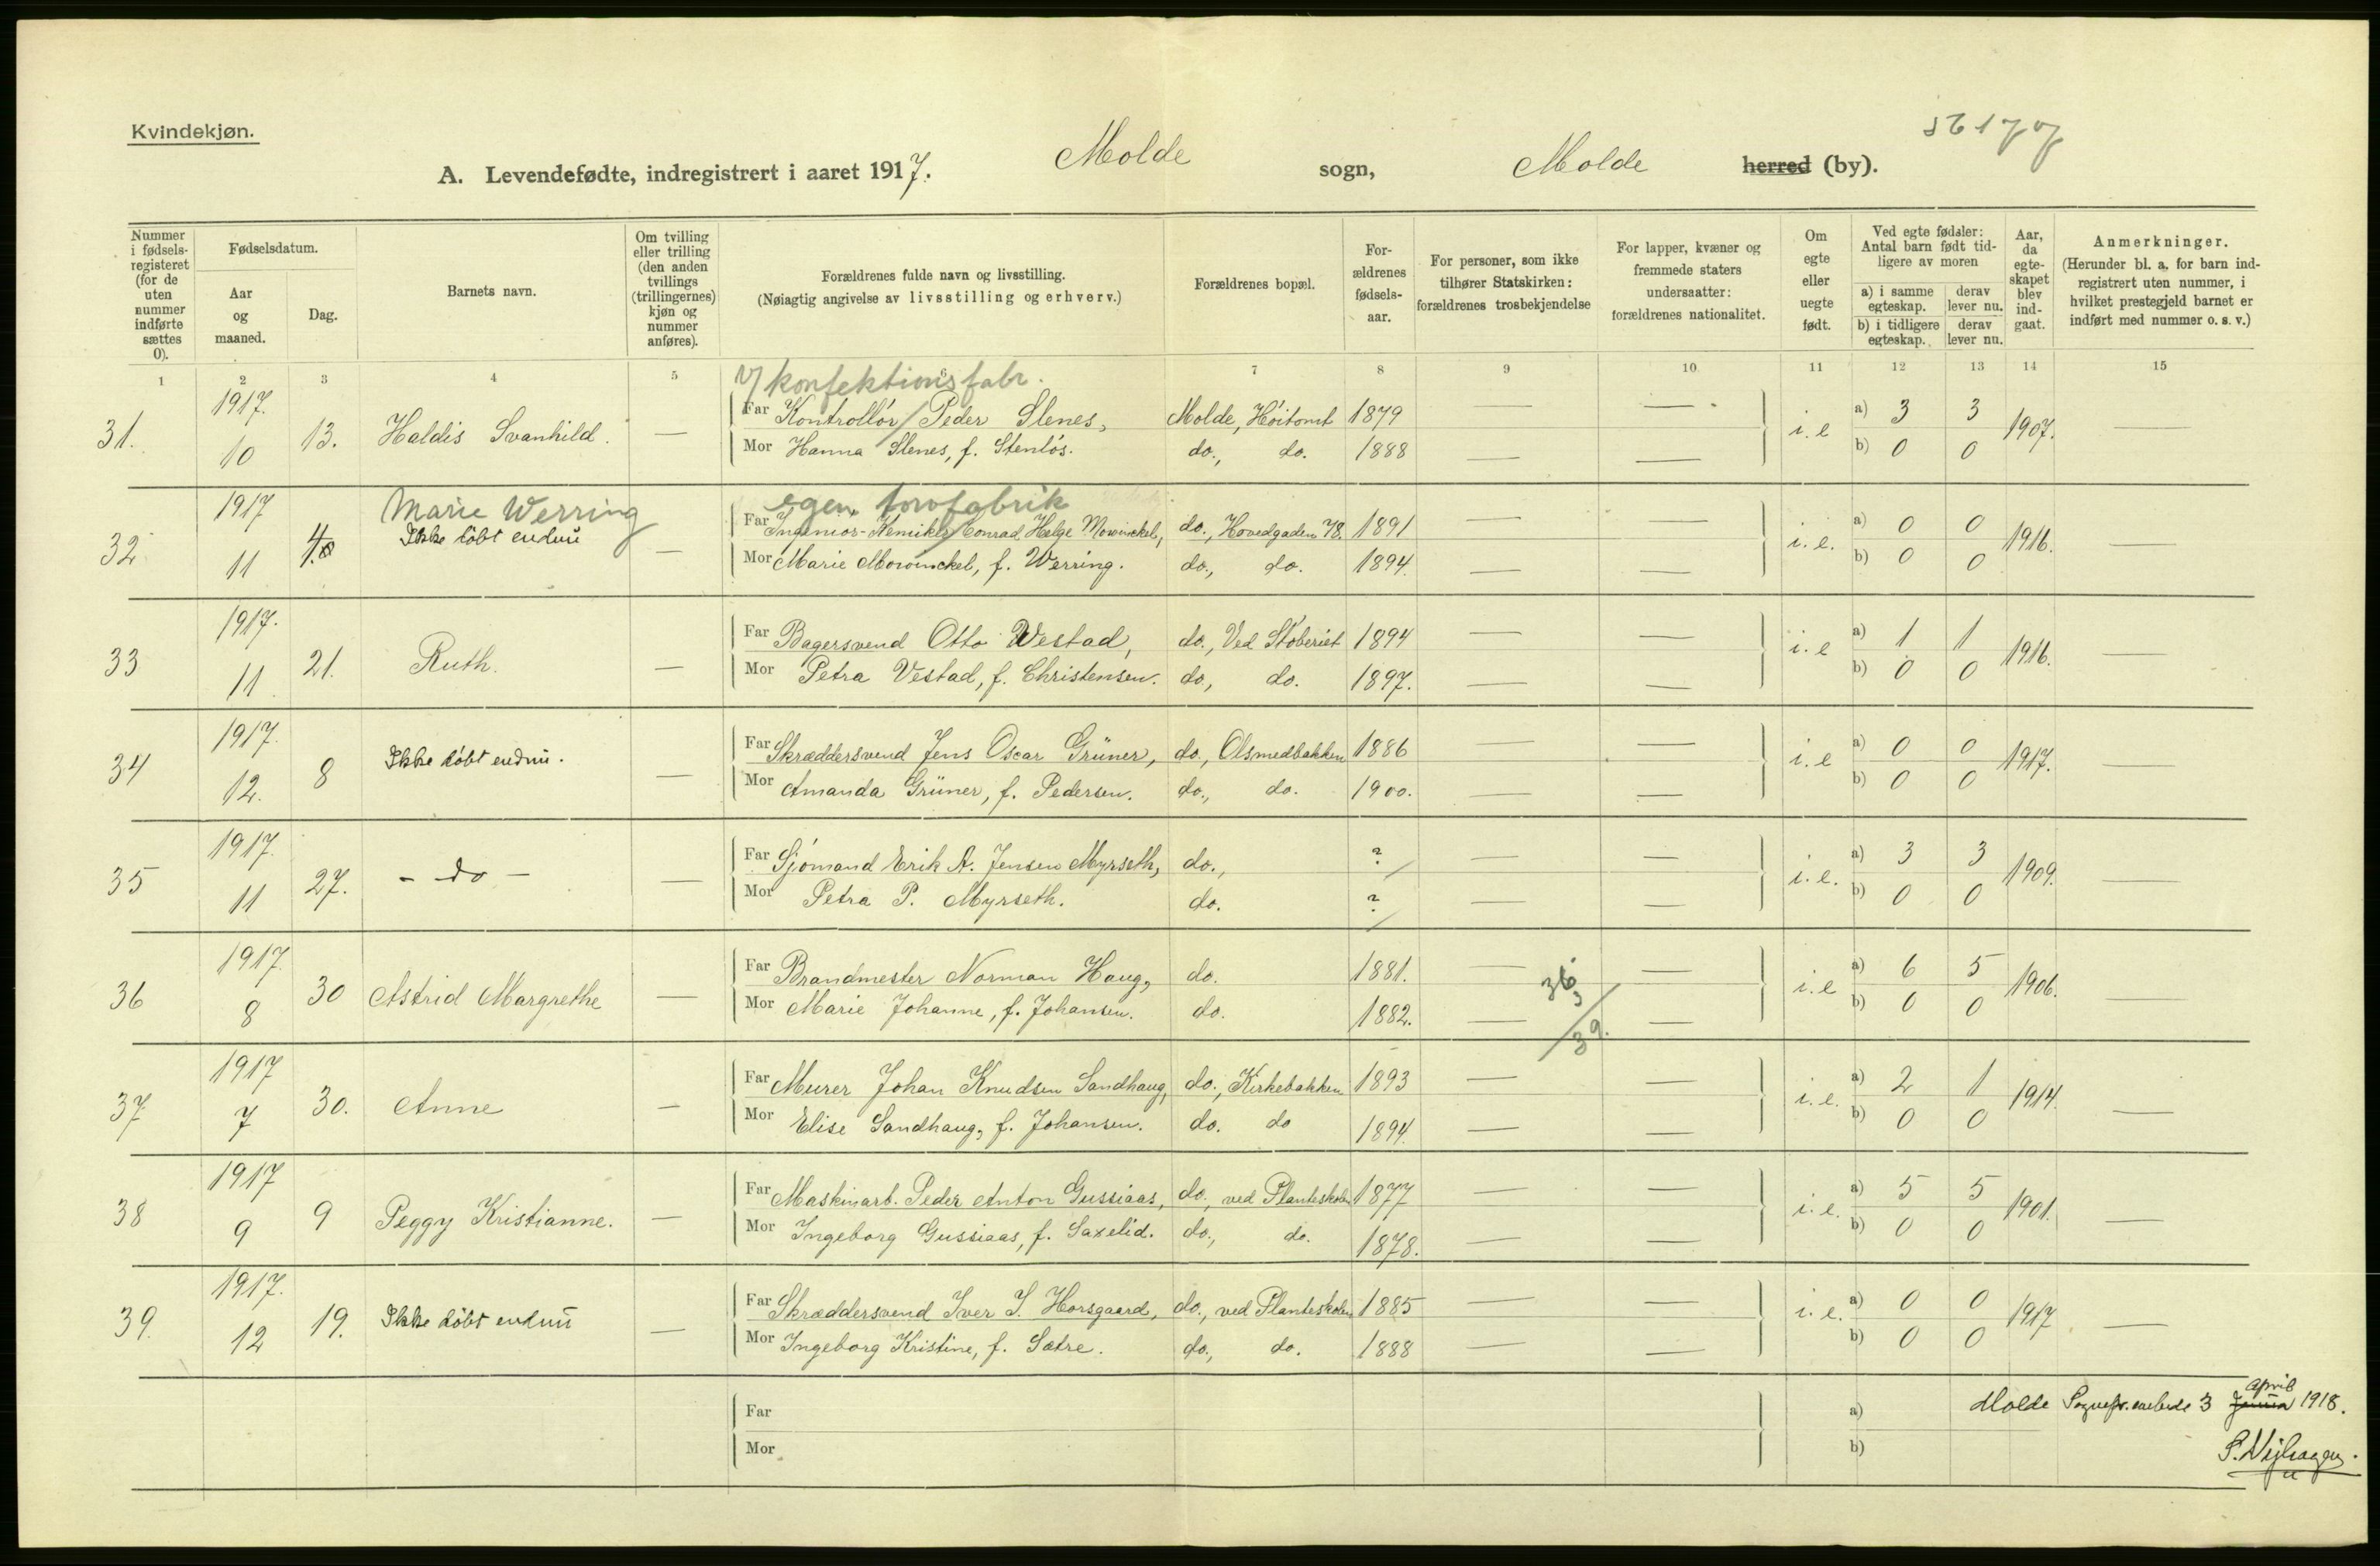 Kvindekjøn.
A. Levendefødte, indregistrert i aaret 1917. Molde sogn, Molde herred (by).
Nummer i fødselsregisteret (for de uten nummer indførte sættes 0).
Fødselsdatum.
Aar og maaned.
Dag.
Barnets navn.
Om tvilling eller trilling (den anden tvillings (trillingernes) kjøn og nummer anføres).
Forældrenes fulde navn og livsstilling.
(Nøiagtig angivelse av livsstilling og erhverv.)
Forældrenes bopæl.
Forældrenes fødselsaar.
For personer, som ikke tilhører Statskirken: forældrenes trosbekjendelse
For lapper, kvæner og fremmede staters undersaatter: forældrenes nationalitet.
Om egte eller uegte født.
Ved egte fødsler: Antal barn født tidligere av moren
a) i samme egteskap. derav lever nu.
b) i tidligere egteskap. derav lever nu.
Aar, da egteskapet blev indgaat.
Anmerkninger.
(Herunder bl. a. for barn indregistrert uten nummer, i hvilket prestegjeld barnet er indført med nummer o. s. v.)
1 2 3 4 5 6 7 8 9 10 11 12 13 14 15
konfektionsfabr.
31. 1917. 10 13. Haldis Svanhild. — Far Kontrollör Peder Slenes, Molde, Höitomt 1879 — — i.e a) 3 3 1907. —
Mor Hanna Slenes, f. Stenlös. do., do. 1888 — — b) 0 0
Marie Werring egen fabrik
32 1917 11 Ikke döbt endnu — Far Ingeniör-Kemiker Conrad Helge Mowinckel, do., Hovedgaden 78. 1891 — — i.e. a) 0 0 1916. —
Mor Marie Mowinckel, f. Werring. do., do. 1894. — — b) 0 0
33 1917. 11. 21. Ruth. — Far Bagersvend Otto Westad, do., Ved Stöberiet 1894 — — i.e a) 1 1 1916. —
Mor Petra Vestad, f. Christensen. do., do. 1897. — — b) 0 0
34 1917. 12. 8 Ikke döbt endnu. — Far Skræddersvend Jens Oscar Grüner, do., Olsmedbakken 1886 — — i.e a) 0 0 1917. —
Mor Amanda Grüner, f. Pedersen. do., do. 1900. — — b) 0 0
35 1917. 11 27. - do - — Far Sjömand Erik A. Jensen Myrseth, do., ? — — i.e. a) 3 3 1909. —
Mor Petra P. Myrseth. do. ? — — b) 0 0
36 1917. 8 30 Astrid Margrethe — Far Brandmester Norman Haug, do. 1881. — — i.e a) 6 5 1906. —
Mor Marie Johanne, f. Johansen. do. 1882. — — b) 0 0
36.
39.
37 1917 7 30. Anne — Far Murer Johan Knudsen Sandhaug, do., Kirkebakken 1893 — — i.e. a) 2 1 1914. —
Mor Elise Sandhaug, f. Johansen. do. do 1894. — — b) 0 0
38 1917 9 9 Peggy Kristianne. — Far Maskinarb. Peder Anton Gussiaas, do., ved Planteskolen 1877 — — i.e. a) 5 5 1901. —
Mor Ingeborg Gussiaas, f. Saxelid. do., do. 1878. — — b) 0 0
39. 1917. 12 19. Ikke döbt endnu — Far Skræddersvend Iver I. Horsgaard, do., ved Planteskolen 1885 — — i.e. a) 0 0 1917 —
Mor Ingeborg Kristine, f. Sætre. do., do. 1888 — — b) 0 0
Far a)
Mor b)
Molde 3 April 1918.